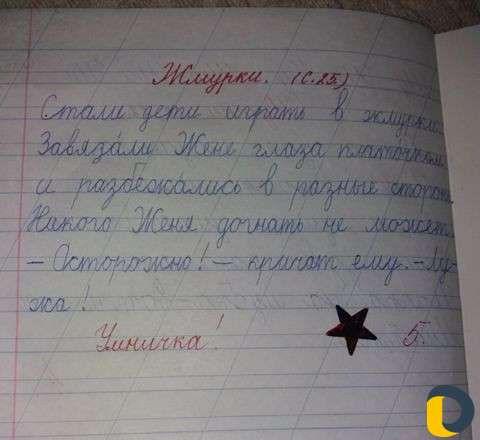 Жмурки. (с.25.)
Стали дети играть в жмурки.
Завяза́ли Жене глаза платочком
и разбежа́лись в разные стороны
Никого Женя догнать не может
— Осторожно! — кричат ему. — Лу-
жа!
Умничка! 5.